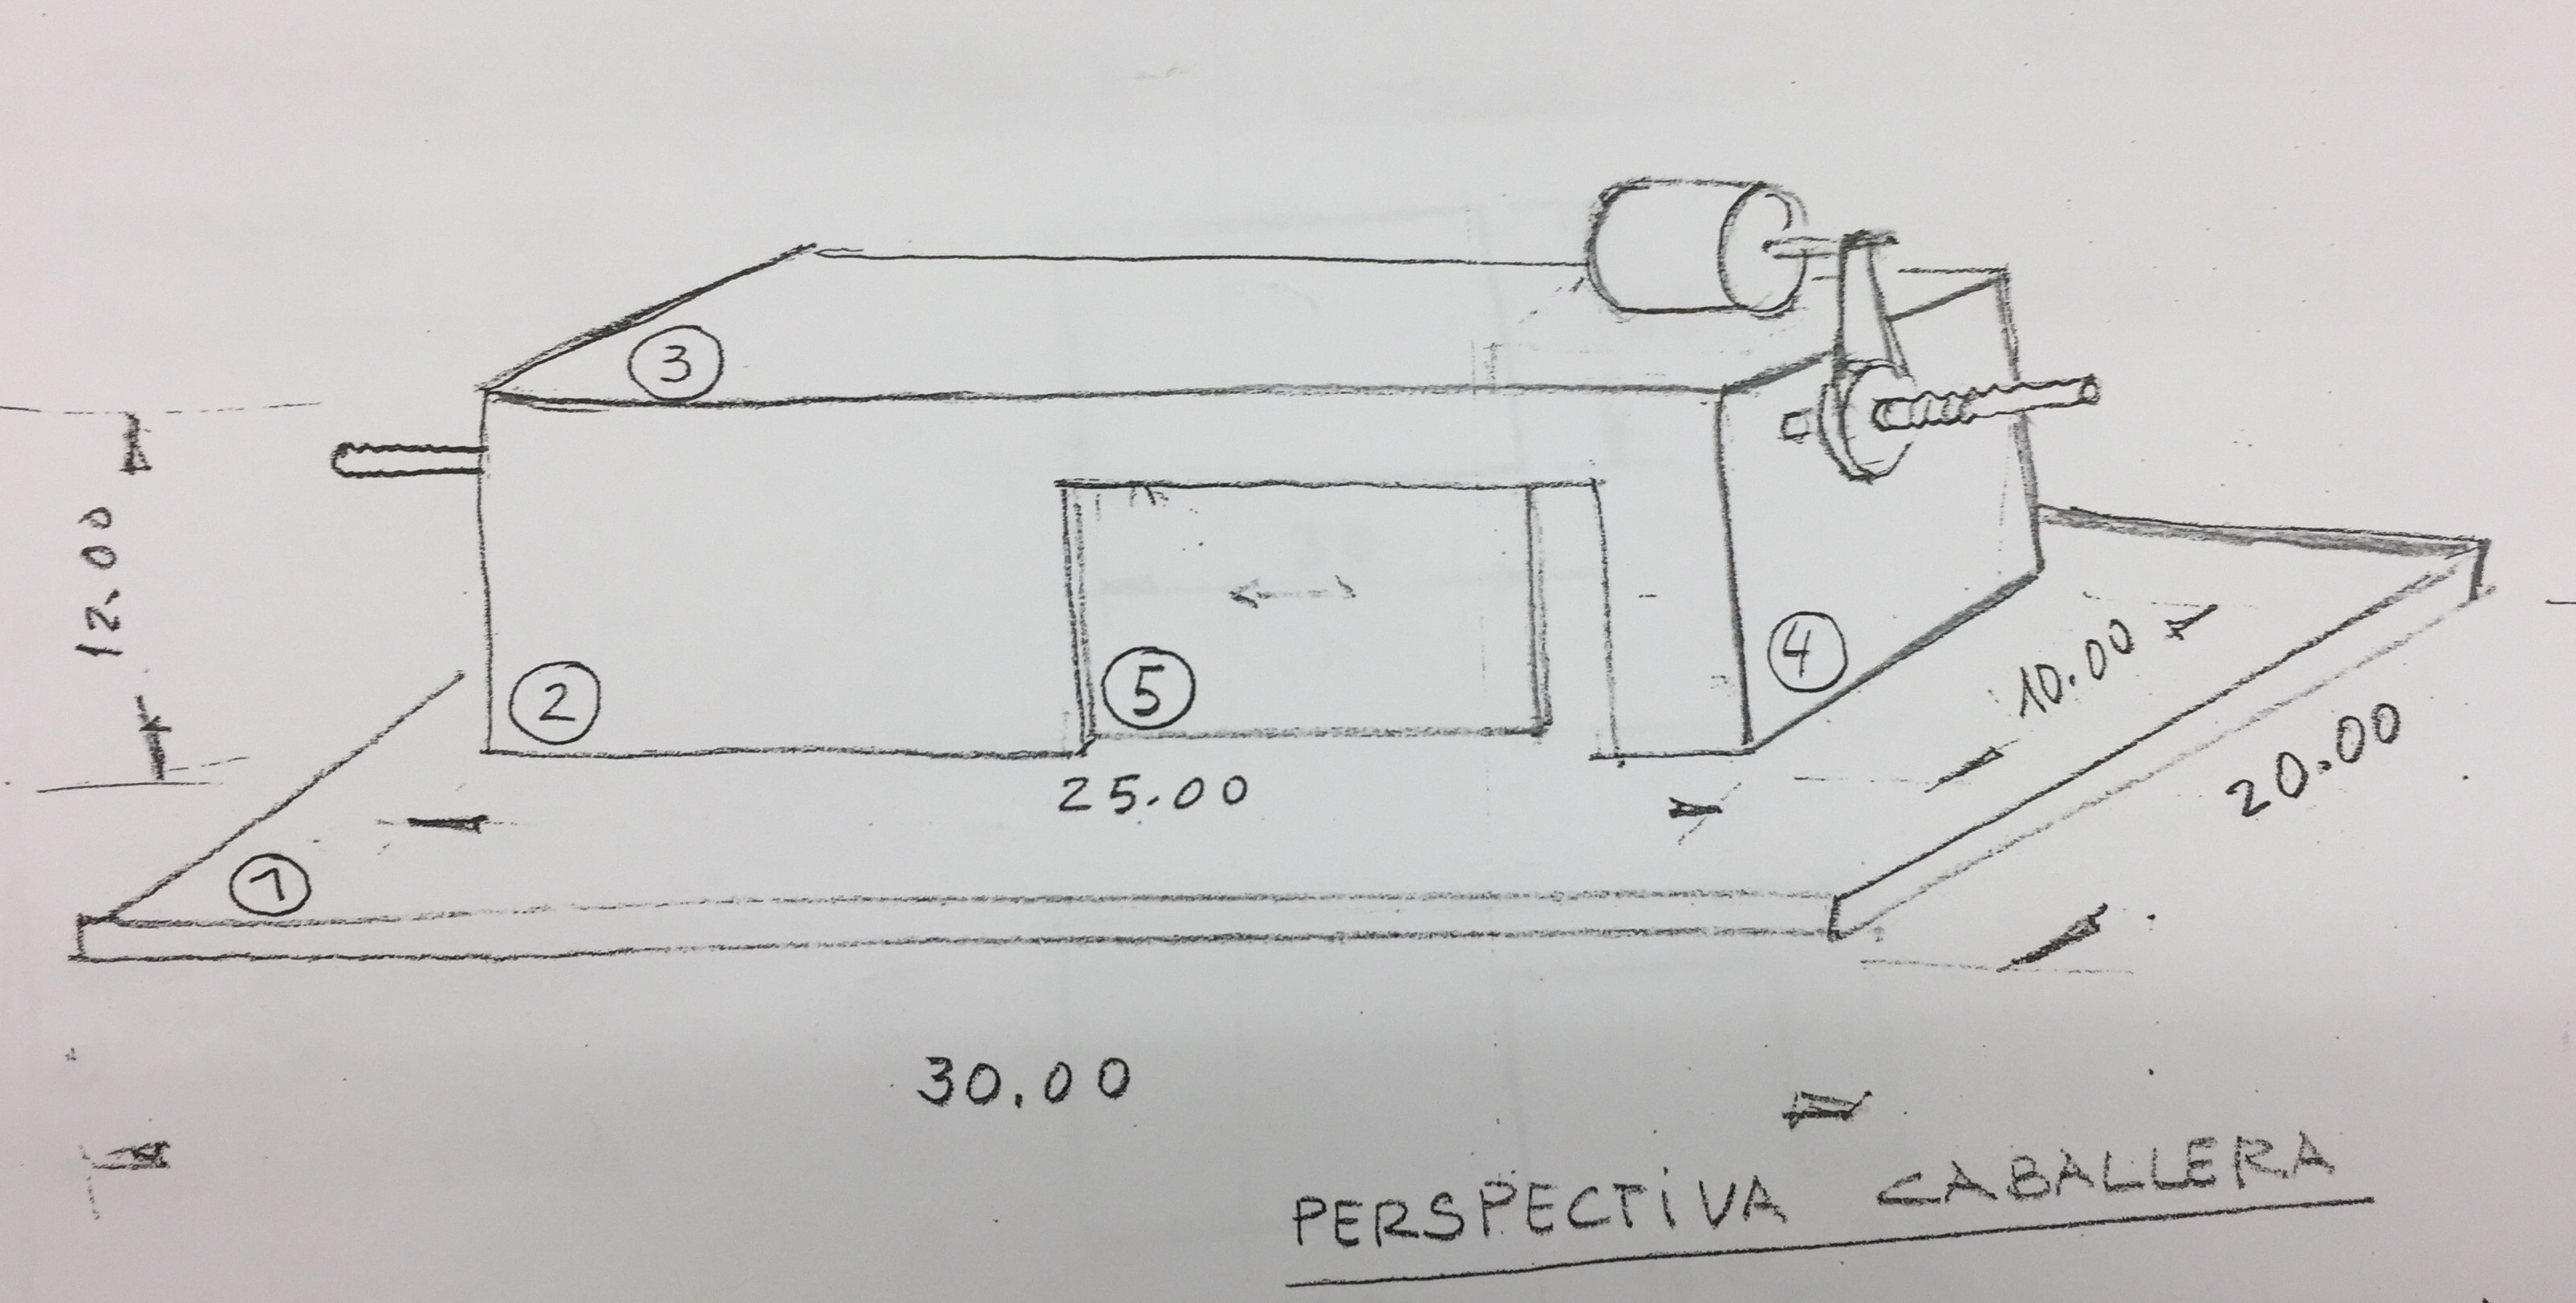 3
12.00
2
5
4
10.00
25.00
20.00
1
30.00
PERSPECTIVA CABALLERA